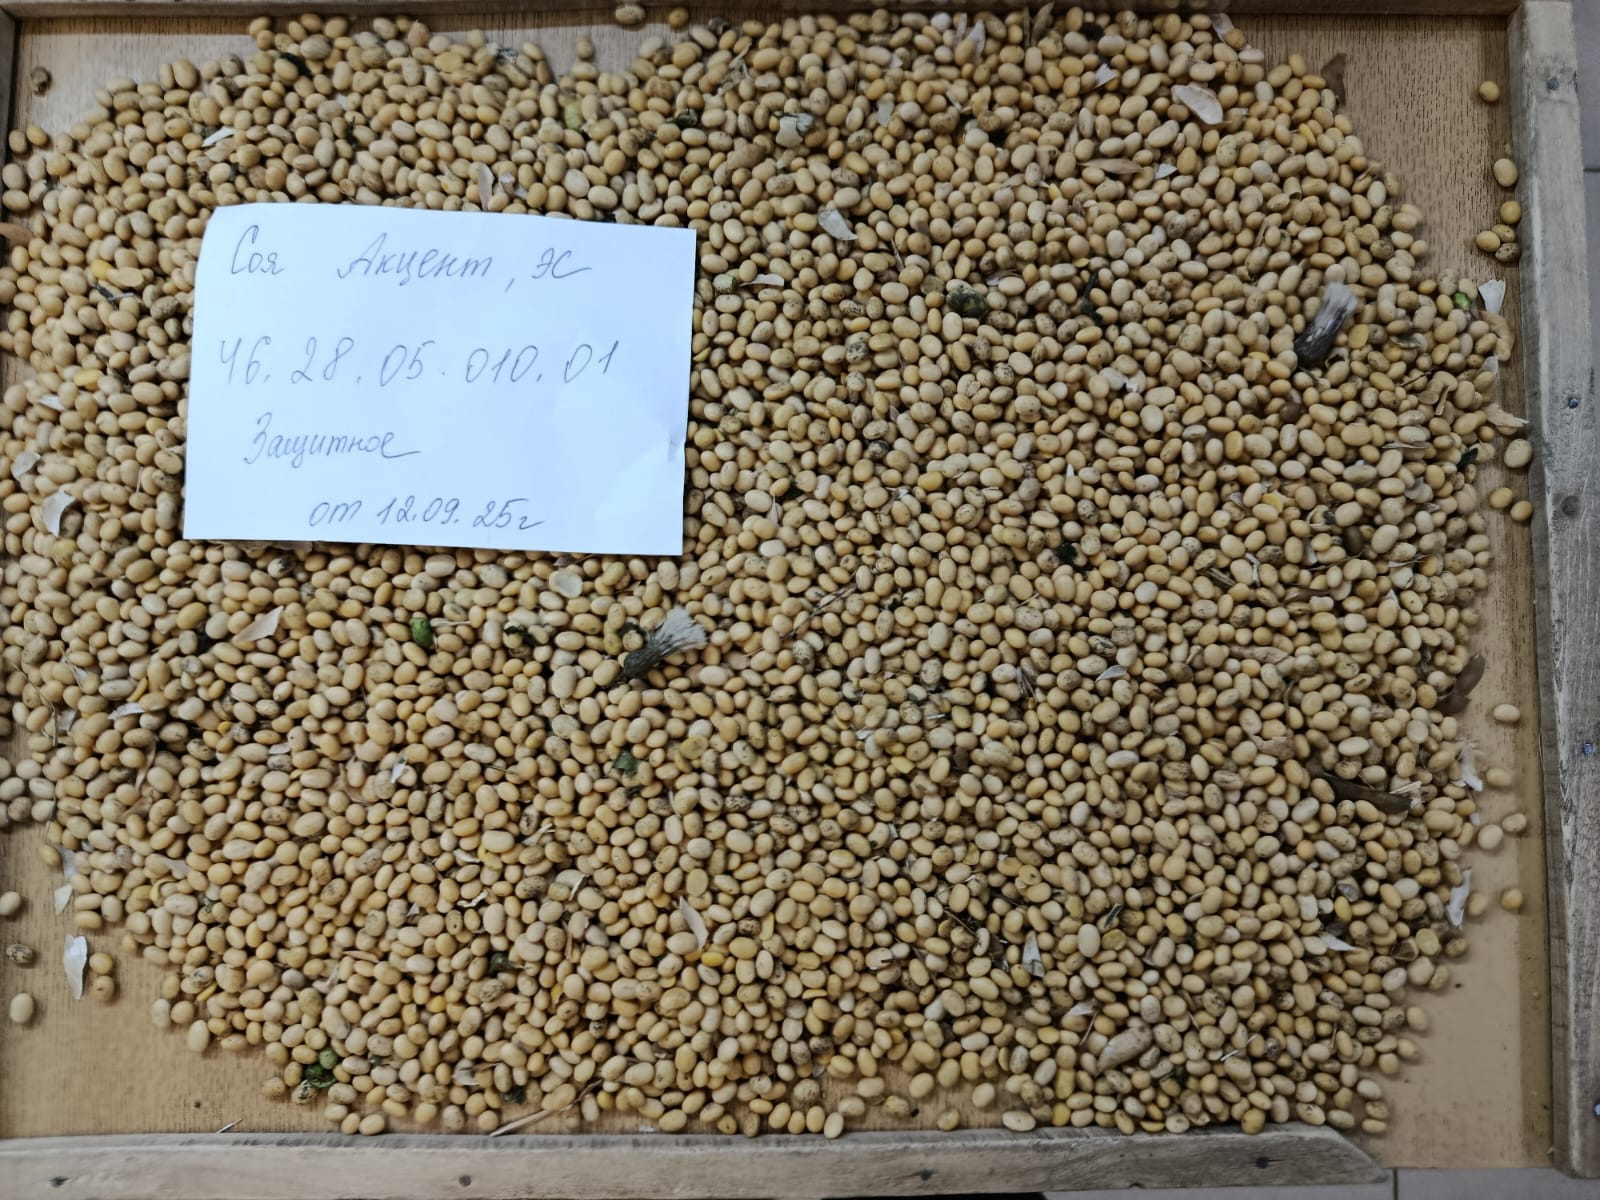 Соя Акцент, ЭС
46.28.05.010.01
Защитное
от 12.09.25г